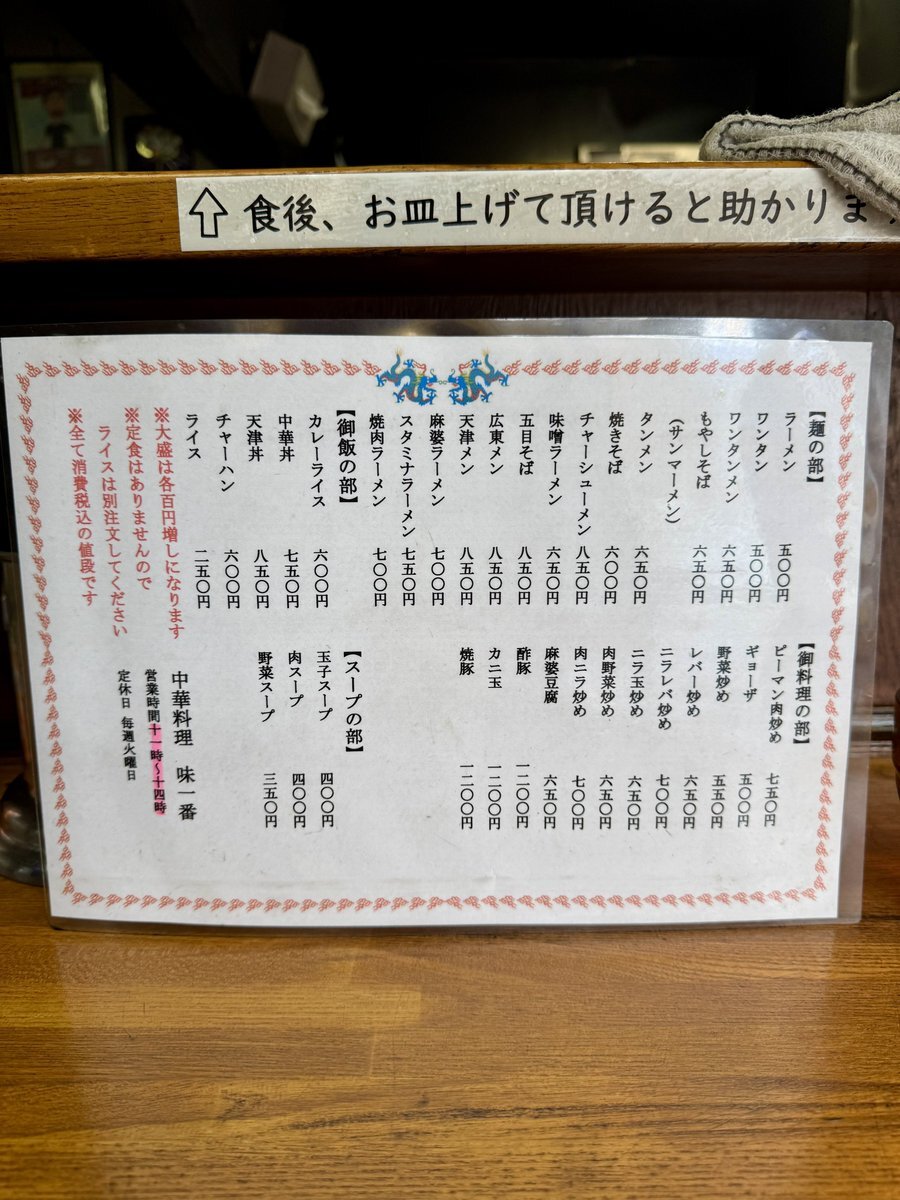 食後、お皿上げて頂けると助かりま
【麺の部】
ラーメン 五〇〇円
ワンタン 五〇〇円
ワンタンメン 六五〇円
もやしそば 六五〇円
(サンマーメン)
タンメン 六五〇円
焼きそば 六〇〇円
チャーシューメン 八五〇円
味噌ラーメン 六五〇円
五目そば 八五〇円
広東メン 八五〇円
天津メン 八五〇円
麻婆ラーメン 七〇〇円
スタミナラーメン 七五〇円
焼肉ラーメン 七〇〇円
【御飯の部】
カレーライス 六〇〇円
中華丼 七五〇円
天津丼 八五〇円
チャーハン 六〇〇円
ライス 二五〇円
※大盛は各百円増しになります
※定食はありませんので
ライスは別注文してください
※全て消費税込の値段です
【御料理の部】
ピーマン肉炒め 七五〇円
ギョーザ 五〇〇円
野菜炒め 五五〇円
レバー炒め 六五〇円
ニラレバ炒め 七〇〇円
ニラ玉炒め 六五〇円
肉野菜炒め 六五〇円
肉ニラ炒め 七〇〇円
麻婆豆腐 六五〇円
酢豚 一二〇〇円
カニ玉 一二〇〇円
焼豚 一二〇〇円
【スープの部】
玉子スープ 四〇〇円
肉スープ 四〇〇円
野菜スープ 三五〇円
中華料理 味一番
営業時間十一時～十四時
定休日 毎週火曜日